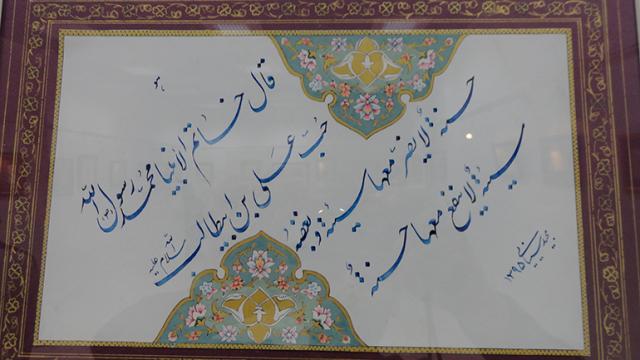 قال خاتم الانبیا محمد رسول الله (ص)
حب علی بن ابیطالب علیه السلام
حسنة لا یضر معها سیئة و بغضه
سیئة لا ینفع معها حسنة
۱۳۹۵